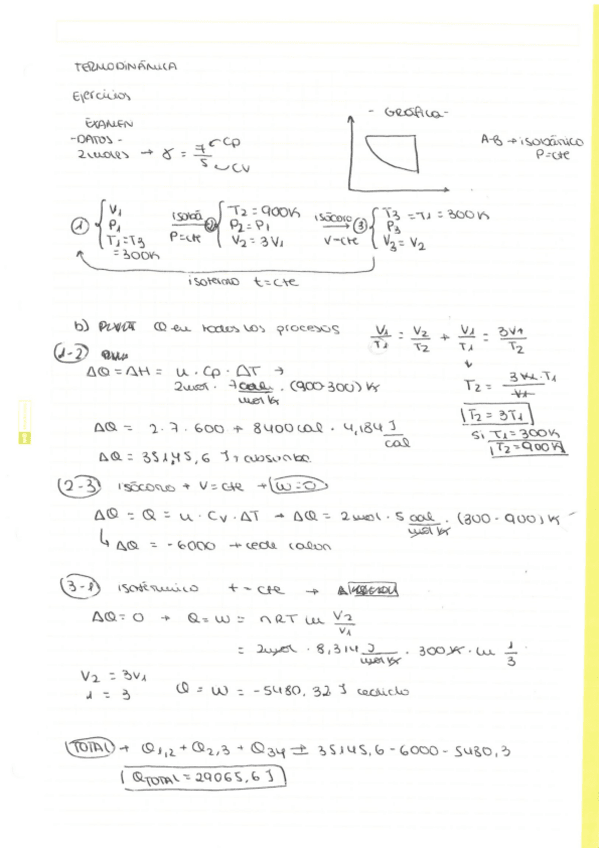 TERMODINÁMICA
Ejercicios
EXAMEN
- DATOS -
2 moles → γ = 7/5 Cp CV
- GRÁFICA -
A-B → isobárico
P = cte
① { V1 P1 T1 = T3 = 300K
isobá P = cte
② { T2 = 900K P2 = P1 V2 = 3V1
isócoro V = cte
③ { T3 = T1 = 300K P3 V3 = V2
isotermo t = cte
b) Q en todos los procesos
V1/T1 = V2/T2 → V1/T1 = 3V1/T2
T2 = 3V1·T1/V1
T2 = 3T1
si T1 = 300K
T2 = 900K
1-2
ΔQ = ΔH = n · Cp · ΔT →
2mol · 7 cal/mol K · (900-300) K
ΔQ = 2 · 7 · 600 → 8400 cal · 4,184 J/cal
ΔQ = 35145,6 J → absorbe
2-3 isócoro → V = cte → W = 0
ΔQ = Q = n · Cv · ΔT → ΔQ = 2mol · 5 cal/mol K · (300 - 900) K
↳ ΔQ = -6000 → cede calor
3-1 isotérmico t = cte →
ΔQ = 0 → Q = W = nRT ln V2/V1
= 2mol · 8,314 J/mol K · 300 K · ln 1/3
V2 = 3V1
1 = 3
Q = W = -5480,32 J cedido
TOTAL → Q1,2 + Q2,3 + Q34 = 35145,6 - 6000 - 5480,3
QTOTAL = 29065,6 J